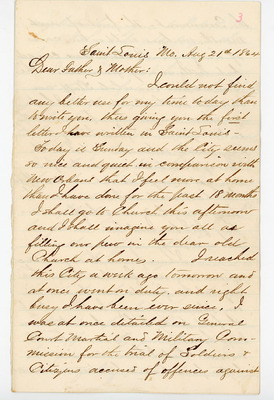 3
Saint Louis Mo. Aug 21st 1864
Dear Father & Mother:
I could not find
any better use for my time to day than
to write you, thus giving you the first
letter I have written in Saint Louis -
Today is Sunday and the City seems
so nice and quiet in comparison with
New Orleans that I feel more at home
than I have done for the past 18 months
I shall go to Church this afternoon
and I shall imagine you all as
filling our pew in the dear old
Church at home. I reached
this City, a week ago tomorrow and
at once went on duty, and right
busy I have been ever since. I
was at once detailed on General
Court Martial and Military Com-
mission for the trial of Soldiers &
Citizens accused of offences against